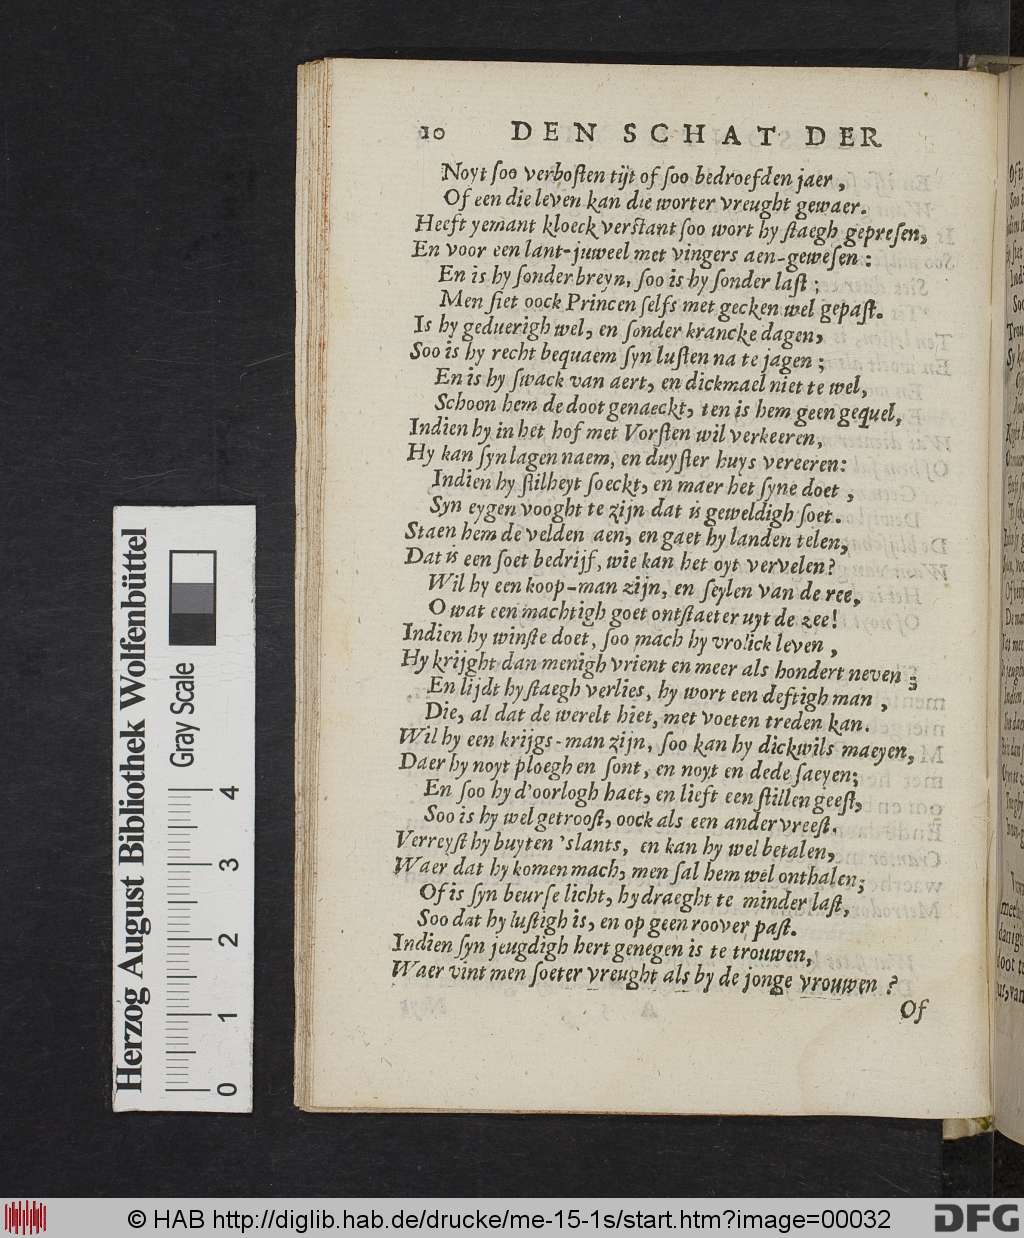 10 DEN SCHAT DER
Noyt ſoo verboſten tijt of ſoo bedroefden jaer,
Of een die leven kan die worter vreught gewaer.
Heeft yemant kloeck verſtant ſoo wort hy ſtaegh gepreſen,
En voor een lant-juweel met vingers aen-geweſen:
En is hy ſonder breyn, ſoo is hy ſonder laſt;
Men ſiet oock Princen ſelfs met gecken wel gepaſt.
Is hy geduerigh wel, en ſonder krancke dagen,
Soo is hy recht bequaem ſyn luſten na te jagen;
En is hy ſwack van aert, en dickmael niet te wel,
Schoon hem de doot genaeckt, ten is hem geen gequel,
Indien hy in het hof met Vorſten wil verkeeren,
Hy kan ſyn lagen naem, en duyſter huys vereeren:
Indien hy ſtilheyt ſoeckt, en maer het ſyne doet,
Syn eygen vooght te zijn dat is geweldigh ſoet.
Staen hem de velden aen, en gaet hy landen telen,
Dat is een ſoet bedrijf, wie kan het oyt vervelen?
Wil hy een koop-man zijn, en ſeylen van de ree,
O wat een machtigh goet ontſtaeter uyt de zee!
Indien hy winſte doet, ſoo mach hy vrolick leven,
Hy krijght dan menigh vrient en meer als hondert neven;
En lijdt hy ſtaegh verlies, hy wort een deftigh man,
Die, al dat de werelt hiet, met voeten treden kan.
Wil hy een krijgs-man zijn, ſoo kan hy dickwils maeyen,
Daer hy noyt ploegh en ſont, en noyt en dede ſaeyen;
En ſoo hy d'oorlogh haet, en lieft een ſtillen geeſt,
Soo is hy wel getrooſt, oock als een ander vreeſt.
Verreyſt hy buyten 'slants, en kan hy wel betalen,
Waer dat hy komen mach, men ſal hem wel onthalen;
Of is ſyn beurſe licht, hy draeght te minder laſt,
Soo dat hy luſtigh is, en op geen roover paſt.
Indien ſyn jeugdigh hert genegen is te trouwen,
Waer vint men ſoeter vreught als by de jonge vrouwen?
Of
Herzog August Bibliothek Wolfenbüttel
Gray Scale
0 1 2 3 4
© HAB http://diglib.hab.de/drucke/me-15-1s/start.htm?image=00032
DFG